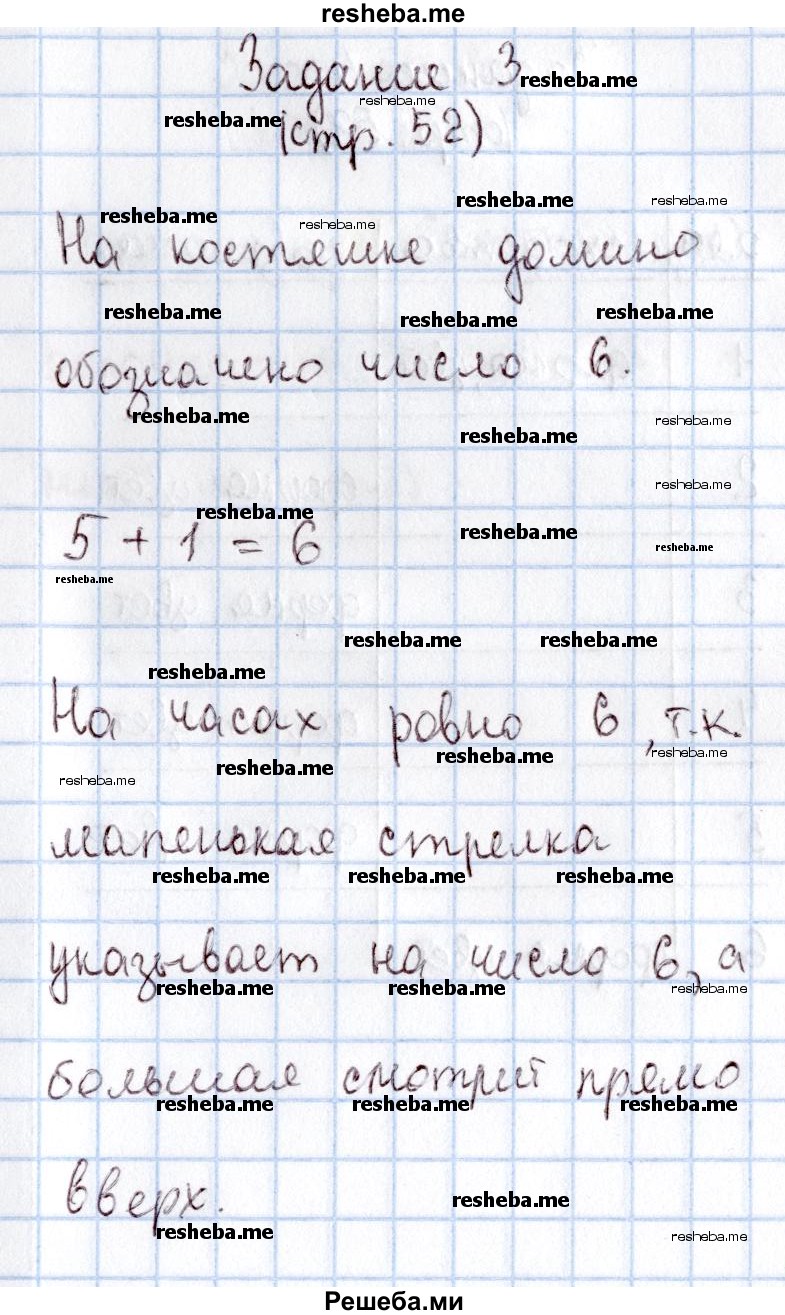 resheba.me
Задание 3 resheba.me
resheba.me
resheba.me (стр. 52)
resheba.me resheba.me
resheba.me resheba.me
На костяшке домино
resheba.me resheba.me resheba.me
обозначено число 6.
resheba.me resheba.me
resheba.me
resheba.me
resheba.me
5 + 1 = 6 resheba.me resheba.me
resheba.me
resheba.me resheba.me
resheba.me
На часах ровно 6, т.к.
resheba.me resheba.me
resheba.me resheba.me
маленькая стрелка
resheba.me resheba.me resheba.me
указывает на число 6, а
resheba.me resheba.me resheba.me
большая смотрит прямо
resheba.me resheba.me resheba.me
вверх. resheba.me
resheba.me resheba.me
Решеба.ми